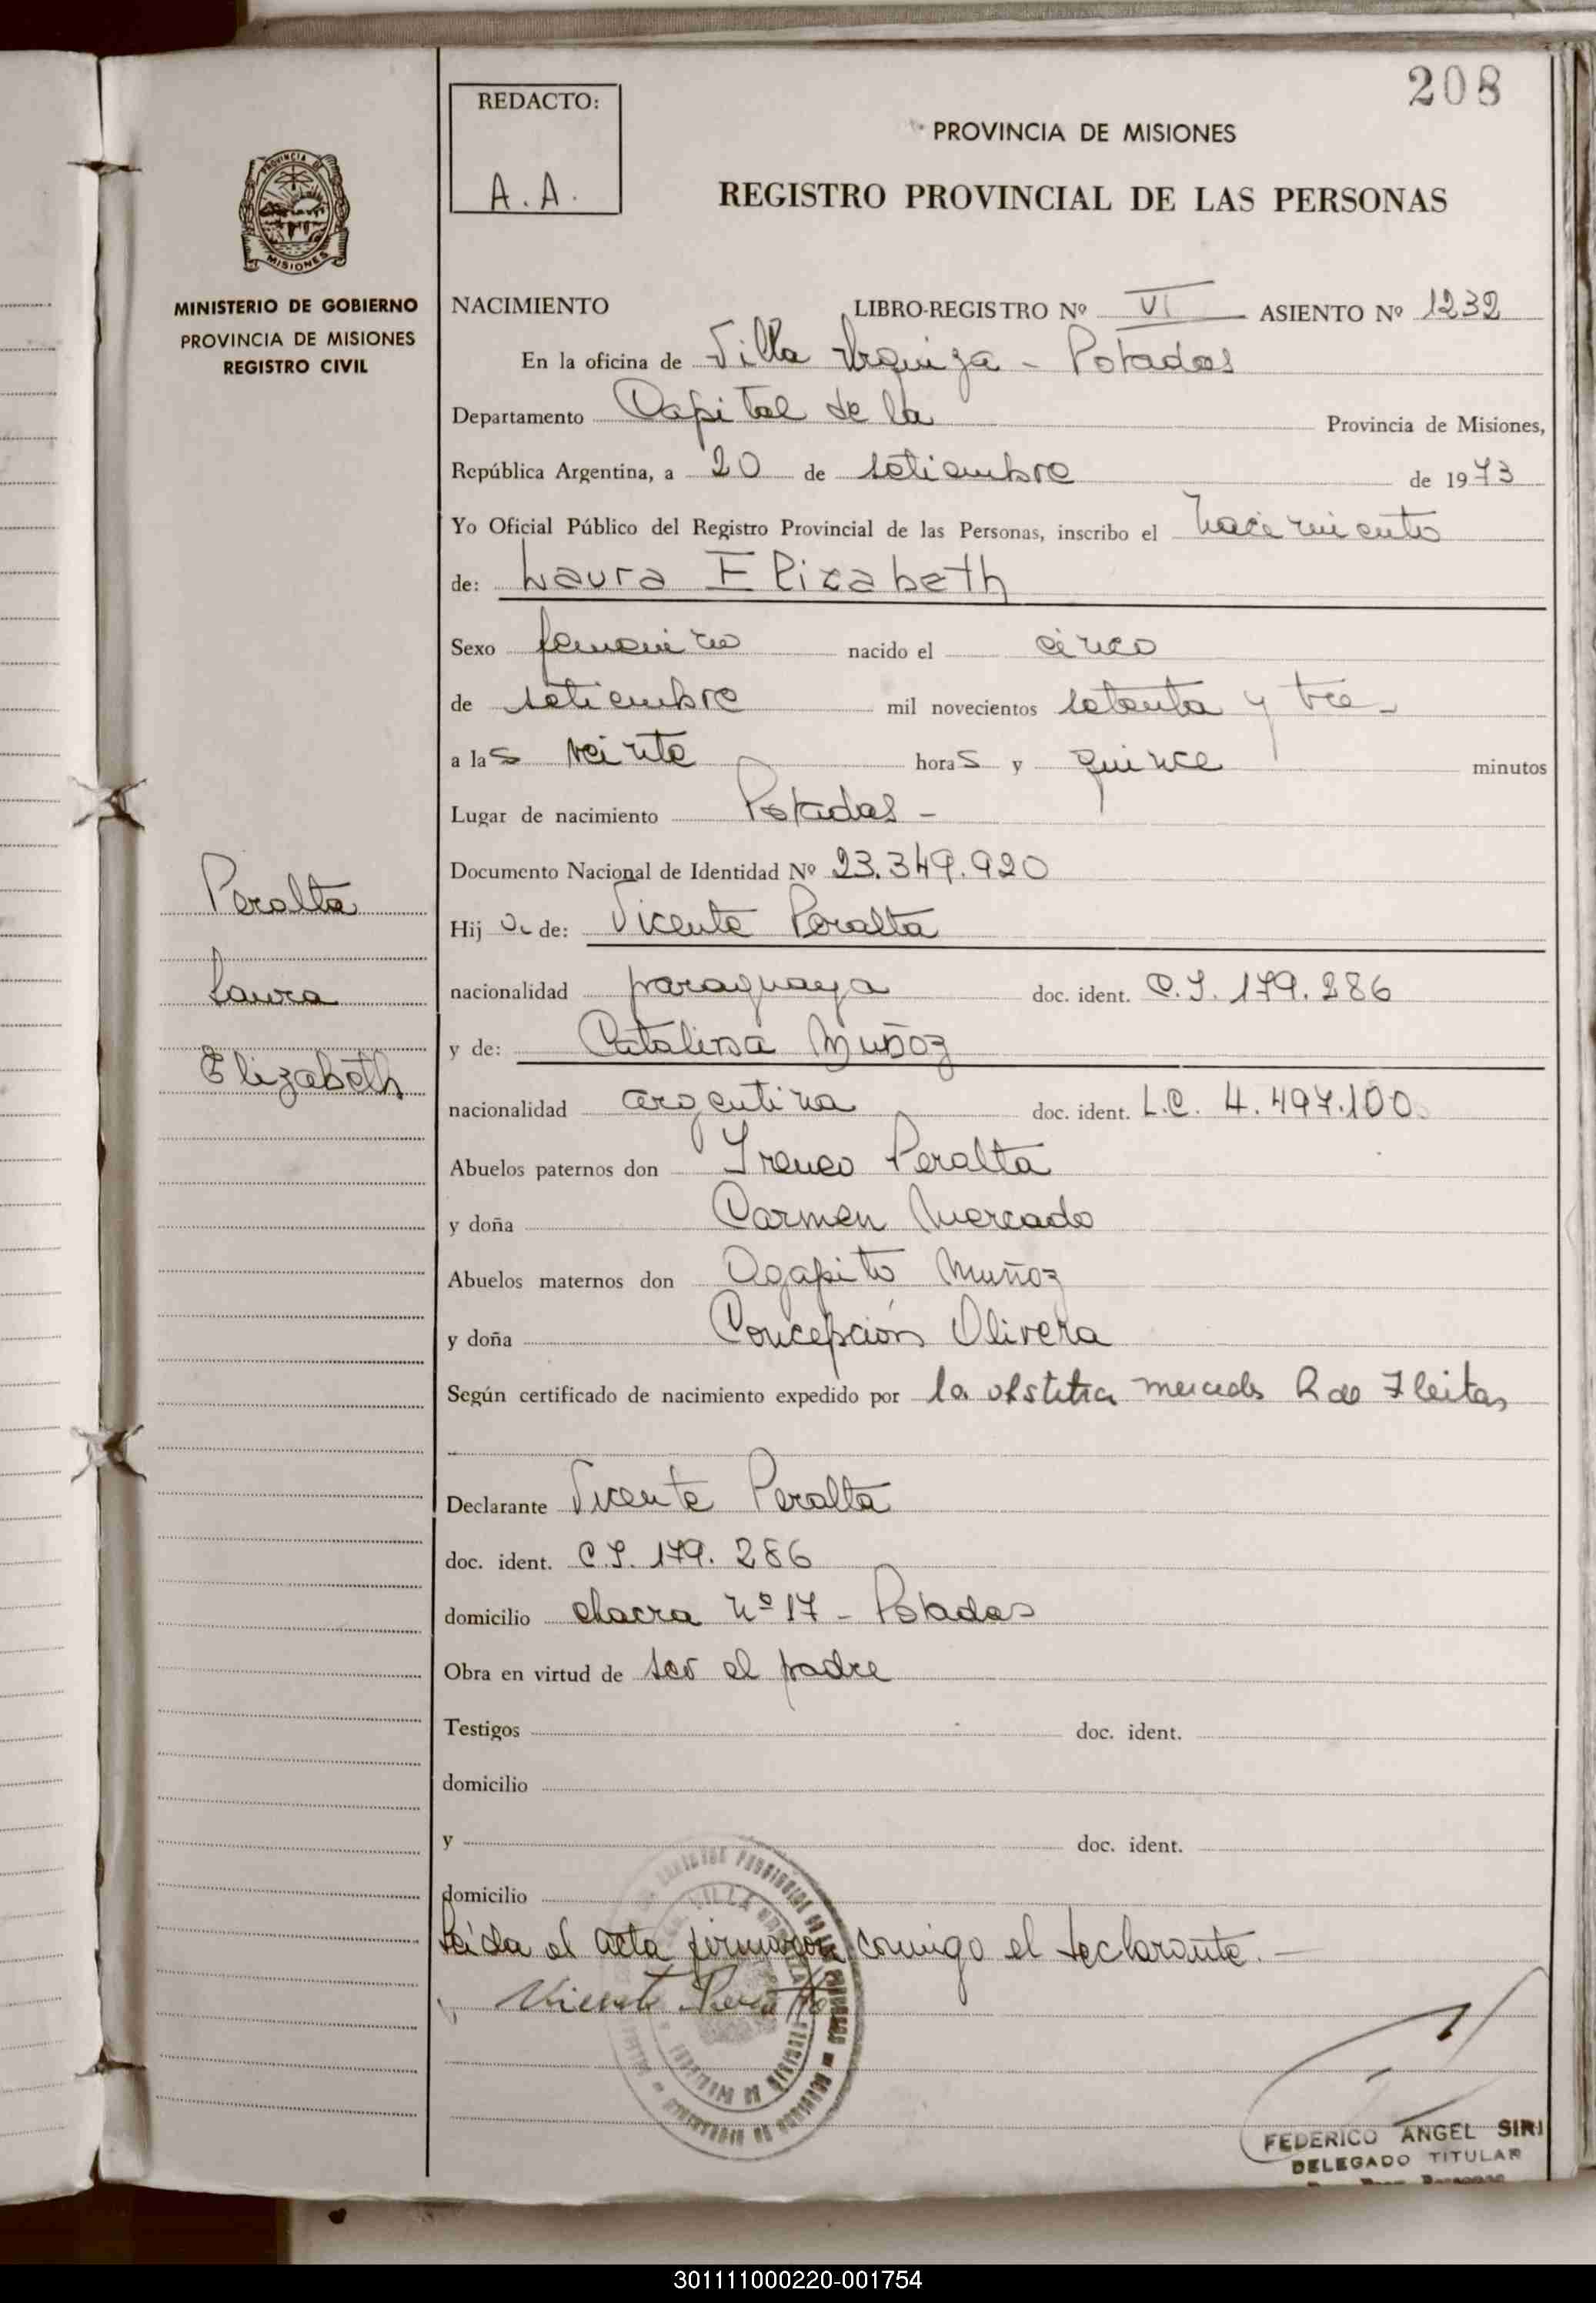 208
REDACTO:
A. A.
PROVINCIA DE MISIONES
REGISTRO PROVINCIAL DE LAS PERSONAS
PROVINCIA DE
MISIONES
MINISTERIO DE GOBIERNO
PROVINCIA DE MISIONES
REGISTRO CIVIL
NACIMIENTO LIBRO-REGISTRO Nº VI ASIENTO Nº 1232
En la oficina de Villa Urquiza - Posadas
Departamento Capital de la Provincia de Misiones,
República Argentina, a 20 de setiembre de 1973
Yo Oficial Público del Registro Provincial de las Personas, inscribo el nacimiento
de: Laura Elizabeth
Sexo femenino nacido el cinco
de setiembre mil novecientos setenta y tre-
a las veinte horas y quince minutos
Lugar de nacimiento Posadas -
Documento Nacional de Identidad Nº 23.349.920
Peralta
Laura
Elizabeth
Hija de: Vicente Peralta
nacionalidad paraguaya doc. ident. C.I. 179.286
y de: Catalina Muñoz
nacionalidad argentina doc. ident. L.C. 4.497.100.
Abuelos paternos don Ireneo Peralta
y doña Carmen Mercado
Abuelos maternos don Agapito Muñoz
y doña Concepción Olivera
Según certificado de nacimiento expedido por la obstetra mercedes R de Fleitas
Declarante Vicente Peralta
doc. ident. C.I. 179. 286
domicilio chacra nº 17 - Posadas
Obra en virtud de ser el padre
Testigos doc. ident.
domicilio
y doc. ident.
domicilio
Leída el acta conmigo el declarante. -
Vicente Peralta
VILLA URQUIZA
FEDERICO ANGEL SIRI
DELEGADO TITULAR
301111000220-001754